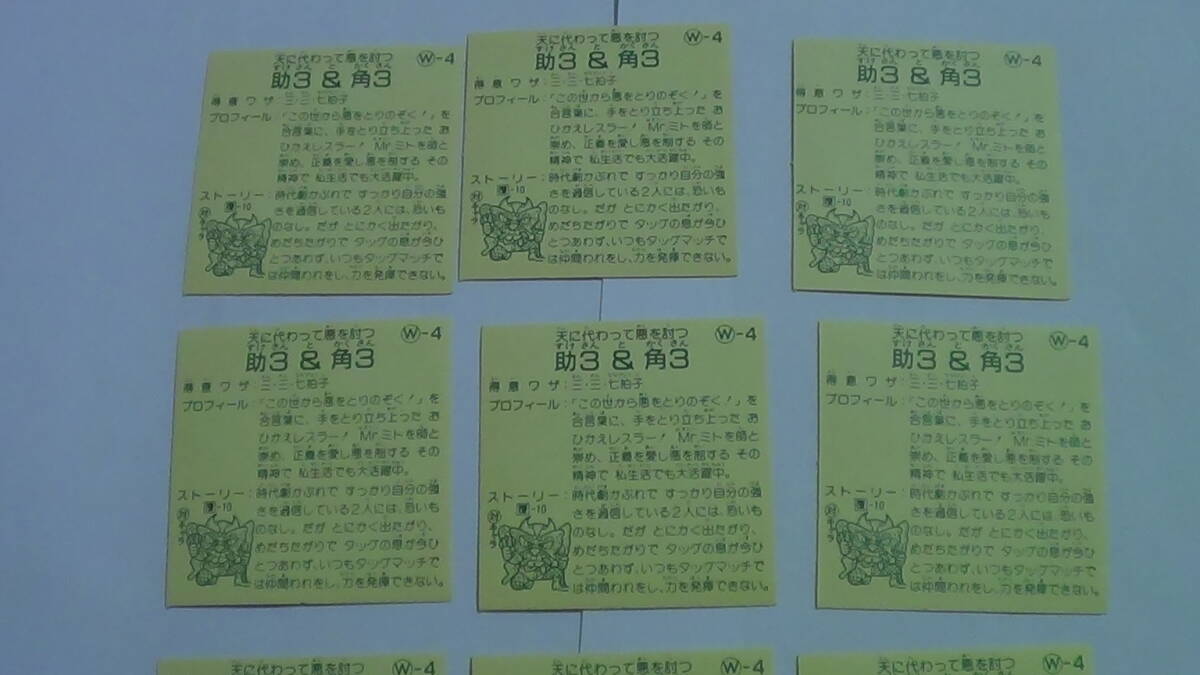 天に代わって悪を討つ Ⓦ-4
すけさん と かくさん
助3 & 角3
得意ワザ:三・三・七拍子
プロフィール:「この世から悪をとりのぞく！」を
合言葉に、手をとり立ち上った お
ひかえレスラー！ Mr.ミトを師と
崇め、正義を愛し悪を制する その
精神で 私生活でも大活躍中。
ストーリー:時代劇かぶれで すっかり自分の強
-10 さを過信している2人には、恐いも
対キャラ のなし。だが とにかく出たがり、
めだちたがりで タッグの息が今ひ
とつあわず、いつもタッグマッチで
は仲間われをし、力を発揮できない。
天に代わって悪を討つ Ⓦ-4
すけさん と かくさん
助3 & 角3
得意ワザ:三・三・七拍子
プロフィール:「この世から悪をとりのぞく！」を
合言葉に、手をとり立ち上った お
ひかえレスラー！ Mr.ミトを師と
崇め、正義を愛し悪を制する その
精神で 私生活でも大活躍中。
ストーリー:時代劇かぶれで すっかり自分の強
-10 さを過信している2人には、恐いも
対キャラ のなし。だが とにかく出たがり、
めだちたがりで タッグの息が今ひ
とつあわず、いつもタッグマッチで
は仲間われをし、力を発揮できない。
天に代わって悪を討つ Ⓦ-4
すけさん と かくさん
助3 & 角3
得意ワザ:三・三・七拍子
プロフィール:「この世から悪をとりのぞく！」を
合言葉に、手をとり立ち上った お
ひかえレスラー！ Mr.ミトを師と
崇め、正義を愛し悪を制する その
精神で 私生活でも大活躍中。
ストーリー:時代劇かぶれで すっかり自分の強
-10 さを過信している2人には、恐いも
対キャラ のなし。だが とにかく出たがり、
めだちたがりで タッグの息が今ひ
とつあわず、いつもタッグマッチで
は仲間われをし、力を発揮できない。
天に代わって悪を討つ Ⓦ-4
すけさん と かくさん
助3 & 角3
得意ワザ:三・三・七拍子
プロフィール:「この世から悪をとりのぞく！」を
合言葉に、手をとり立ち上った お
ひかえレスラー！ Mr.ミトを師と
崇め、正義を愛し悪を制する その
精神で 私生活でも大活躍中。
ストーリー:時代劇かぶれで すっかり自分の強
-10 さを過信している2人には、恐いも
対キャラ のなし。だが とにかく出たがり、
めだちたがりで タッグの息が今ひ
とつあわず、いつもタッグマッチで
は仲間われをし、力を発揮できない。
天に代わって悪を討つ Ⓦ-4
すけさん と かくさん
助3 & 角3
得意ワザ:三・三・七拍子
プロフィール:「この世から悪をとりのぞく！」を
合言葉に、手をとり立ち上った お
ひかえレスラー！ Mr.ミトを師と
崇め、正義を愛し悪を制する その
精神で 私生活でも大活躍中。
ストーリー:時代劇かぶれで すっかり自分の強
-10 さを過信している2人には、恐いも
対キャラ のなし。だが とにかく出たがり、
めだちたがりで タッグの息が今ひ
とつあわず、いつもタッグマッチで
は仲間われをし、力を発揮できない。
天に代わって悪を討つ Ⓦ-4
すけさん と かくさん
助3 & 角3
得意ワザ:三・三・七拍子
プロフィール:「この世から悪をとりのぞく！」を
合言葉に、手をとり立ち上った お
ひかえレスラー！ Mr.ミトを師と
崇め、正義を愛し悪を制する その
精神で 私生活でも大活躍中。
ストーリー:時代劇かぶれで すっかり自分の強
-10 さを過信している2人には、恐いも
対キャラ のなし。だが とにかく出たがり、
めだちたがりで タッグの息が今ひ
とつあわず、いつもタッグマッチで
は仲間われをし、力を発揮できない。
天に代わって悪を討つ Ⓦ-4
天に代わって悪を討つ Ⓦ-4
天に代わって悪を討つ Ⓦ-4